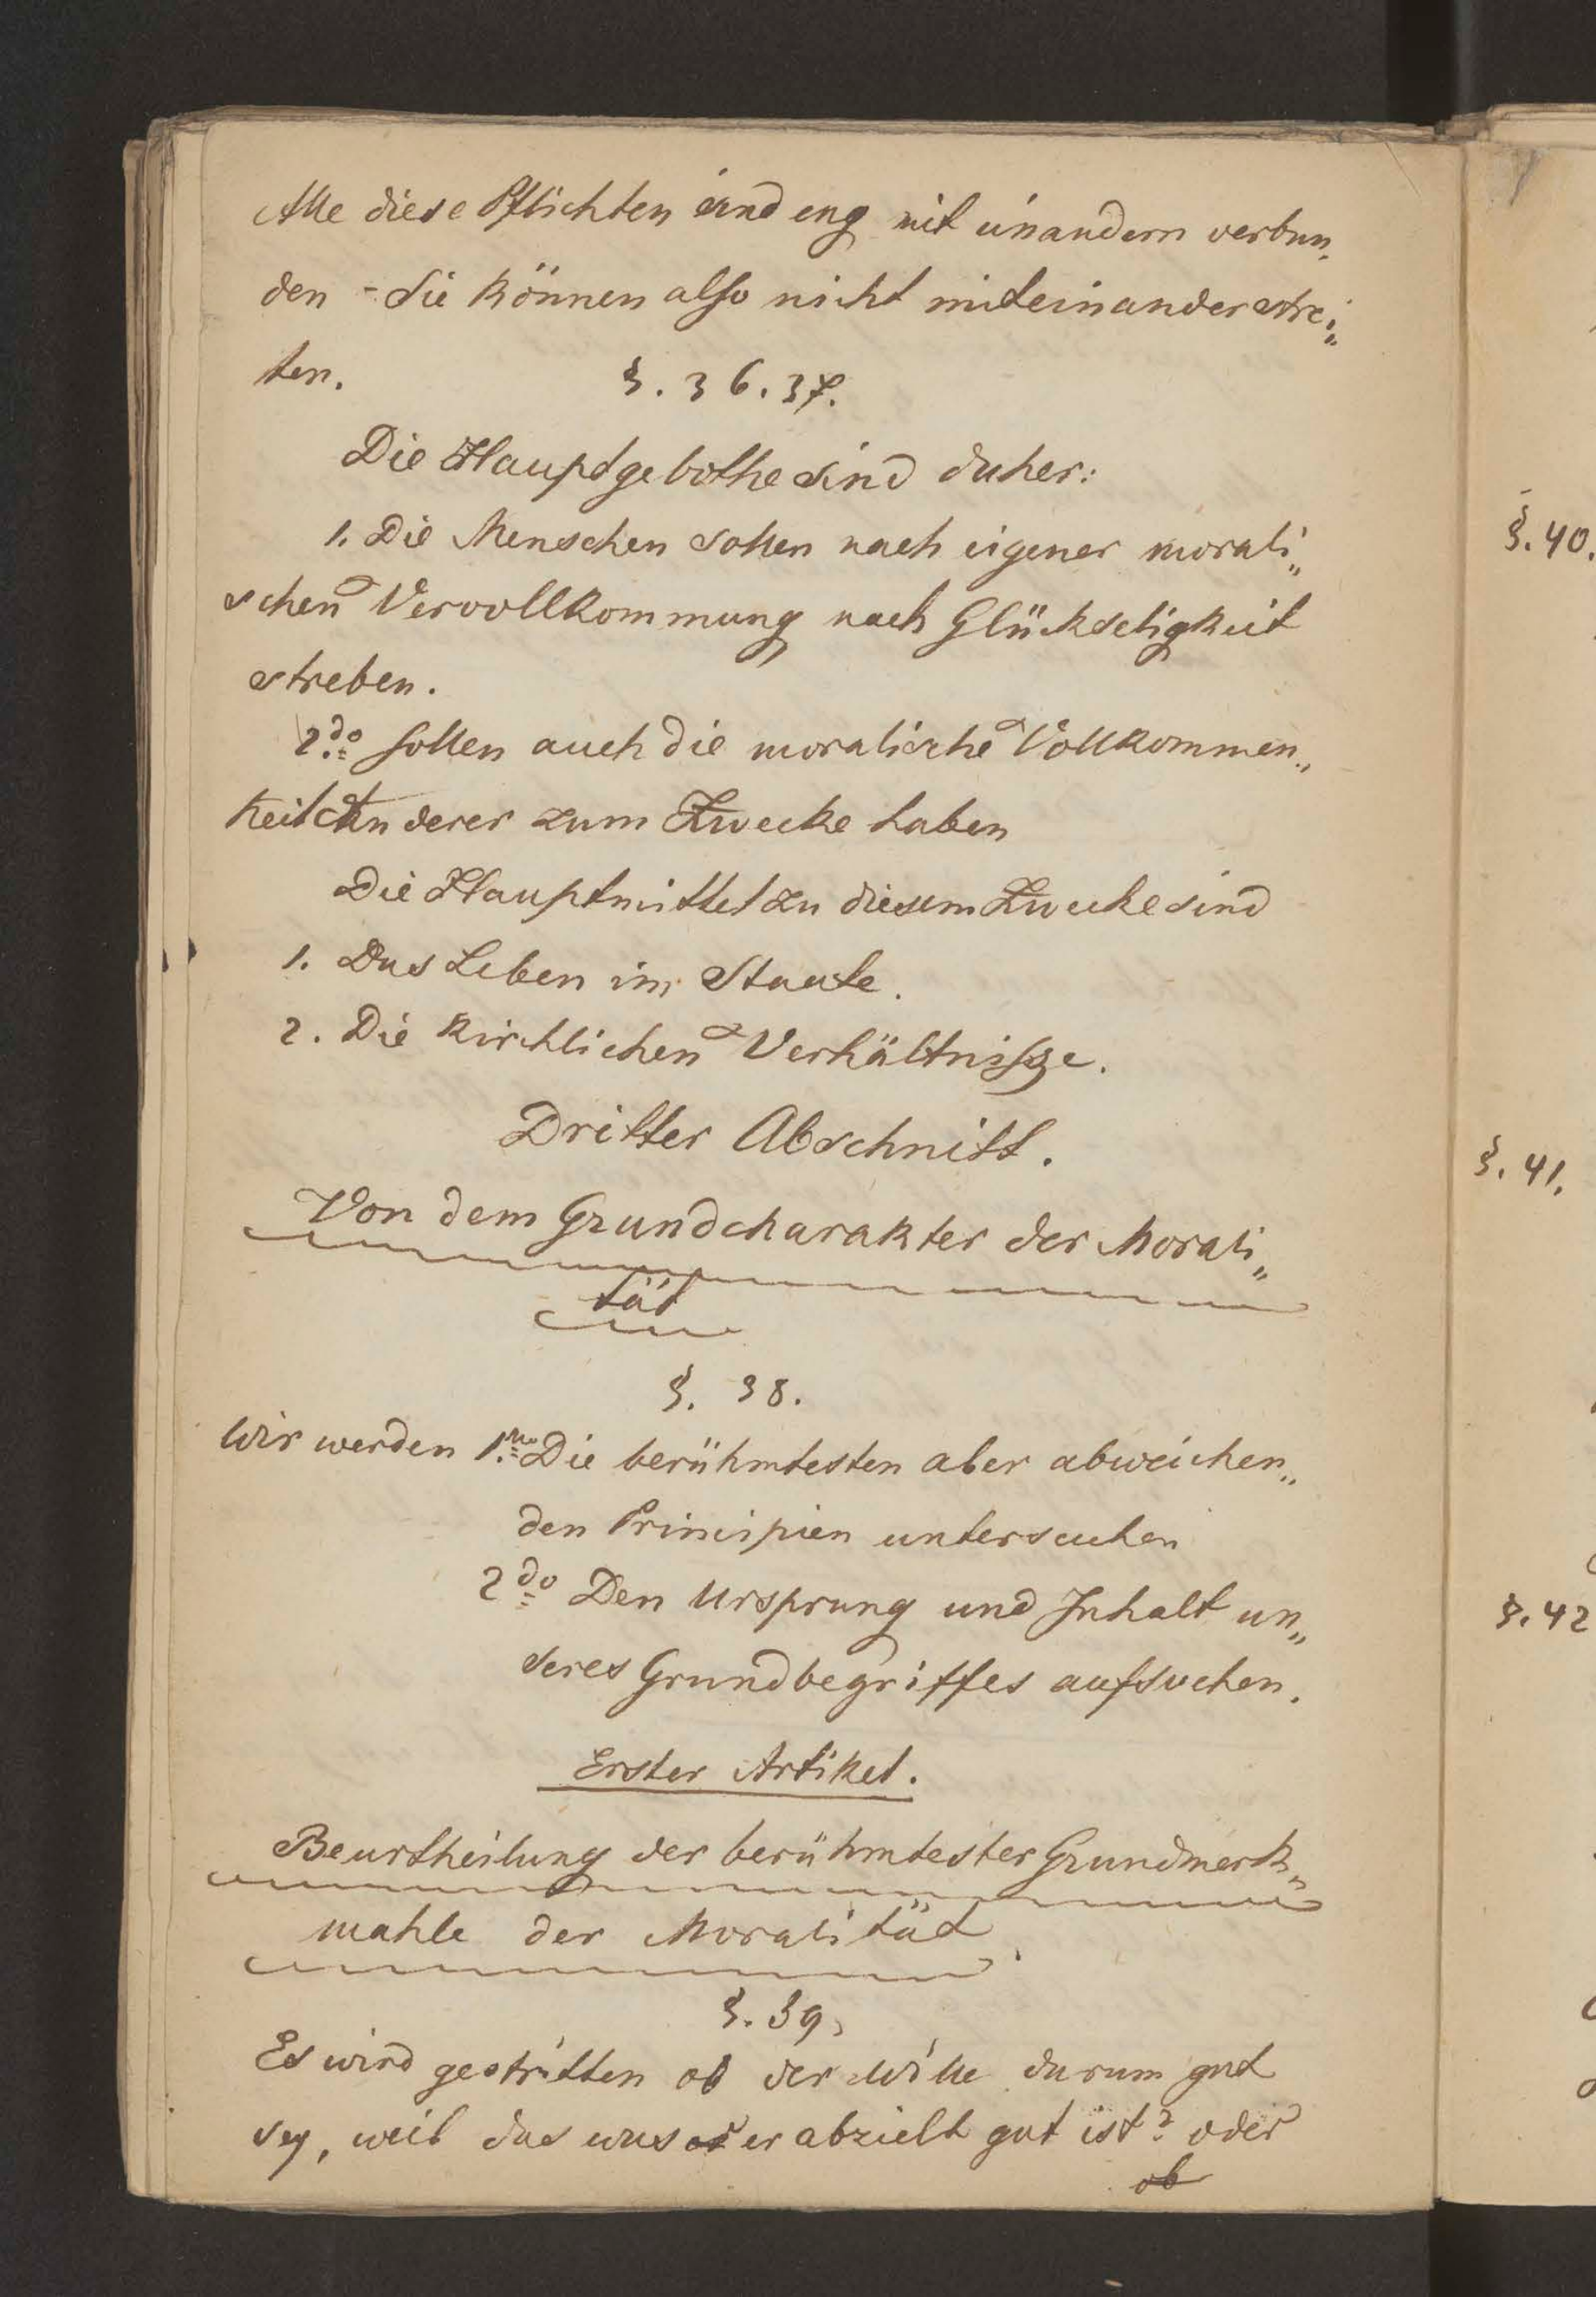 Alle diese Pflichten sind eng mit einandern verbun„
den - Sie können also nicht miteinander strei„
ten. §. 36. 37.
Die Hauptgebothe sind daher:
1. Die Menschen sollen nach eigener morali„
schen Vervollkommung nach Glückseligkeit
streben.
2do sollen auch die moralische Vollkommen„
keit Anderer zum Zwecke haben
Die Hauptmittel zu diesem Zwecke sind
1. Das Leben im Staate.
2. Die kirchlichen Verhältniße.
Dritter Abschnitt.
Von dem Grundcharakter der Morali„
tät
§. 38.
Wir werden 1mo Die berühmtesten aber abweichen„
den Principien untersuchen
2do Den Ursprung und Inhalt un„
seres Grundbegriffes aufsuchen.
Erster Artikel.
Beurtheilung der berühmtester Grundmerk„
mahle der Moralität.
§. 39.
Es wird gestritten ob der Wille darum gut
sey, weil das was er abzielt gut ist? oder
ob
§. 40.
§. 41.
§. 42